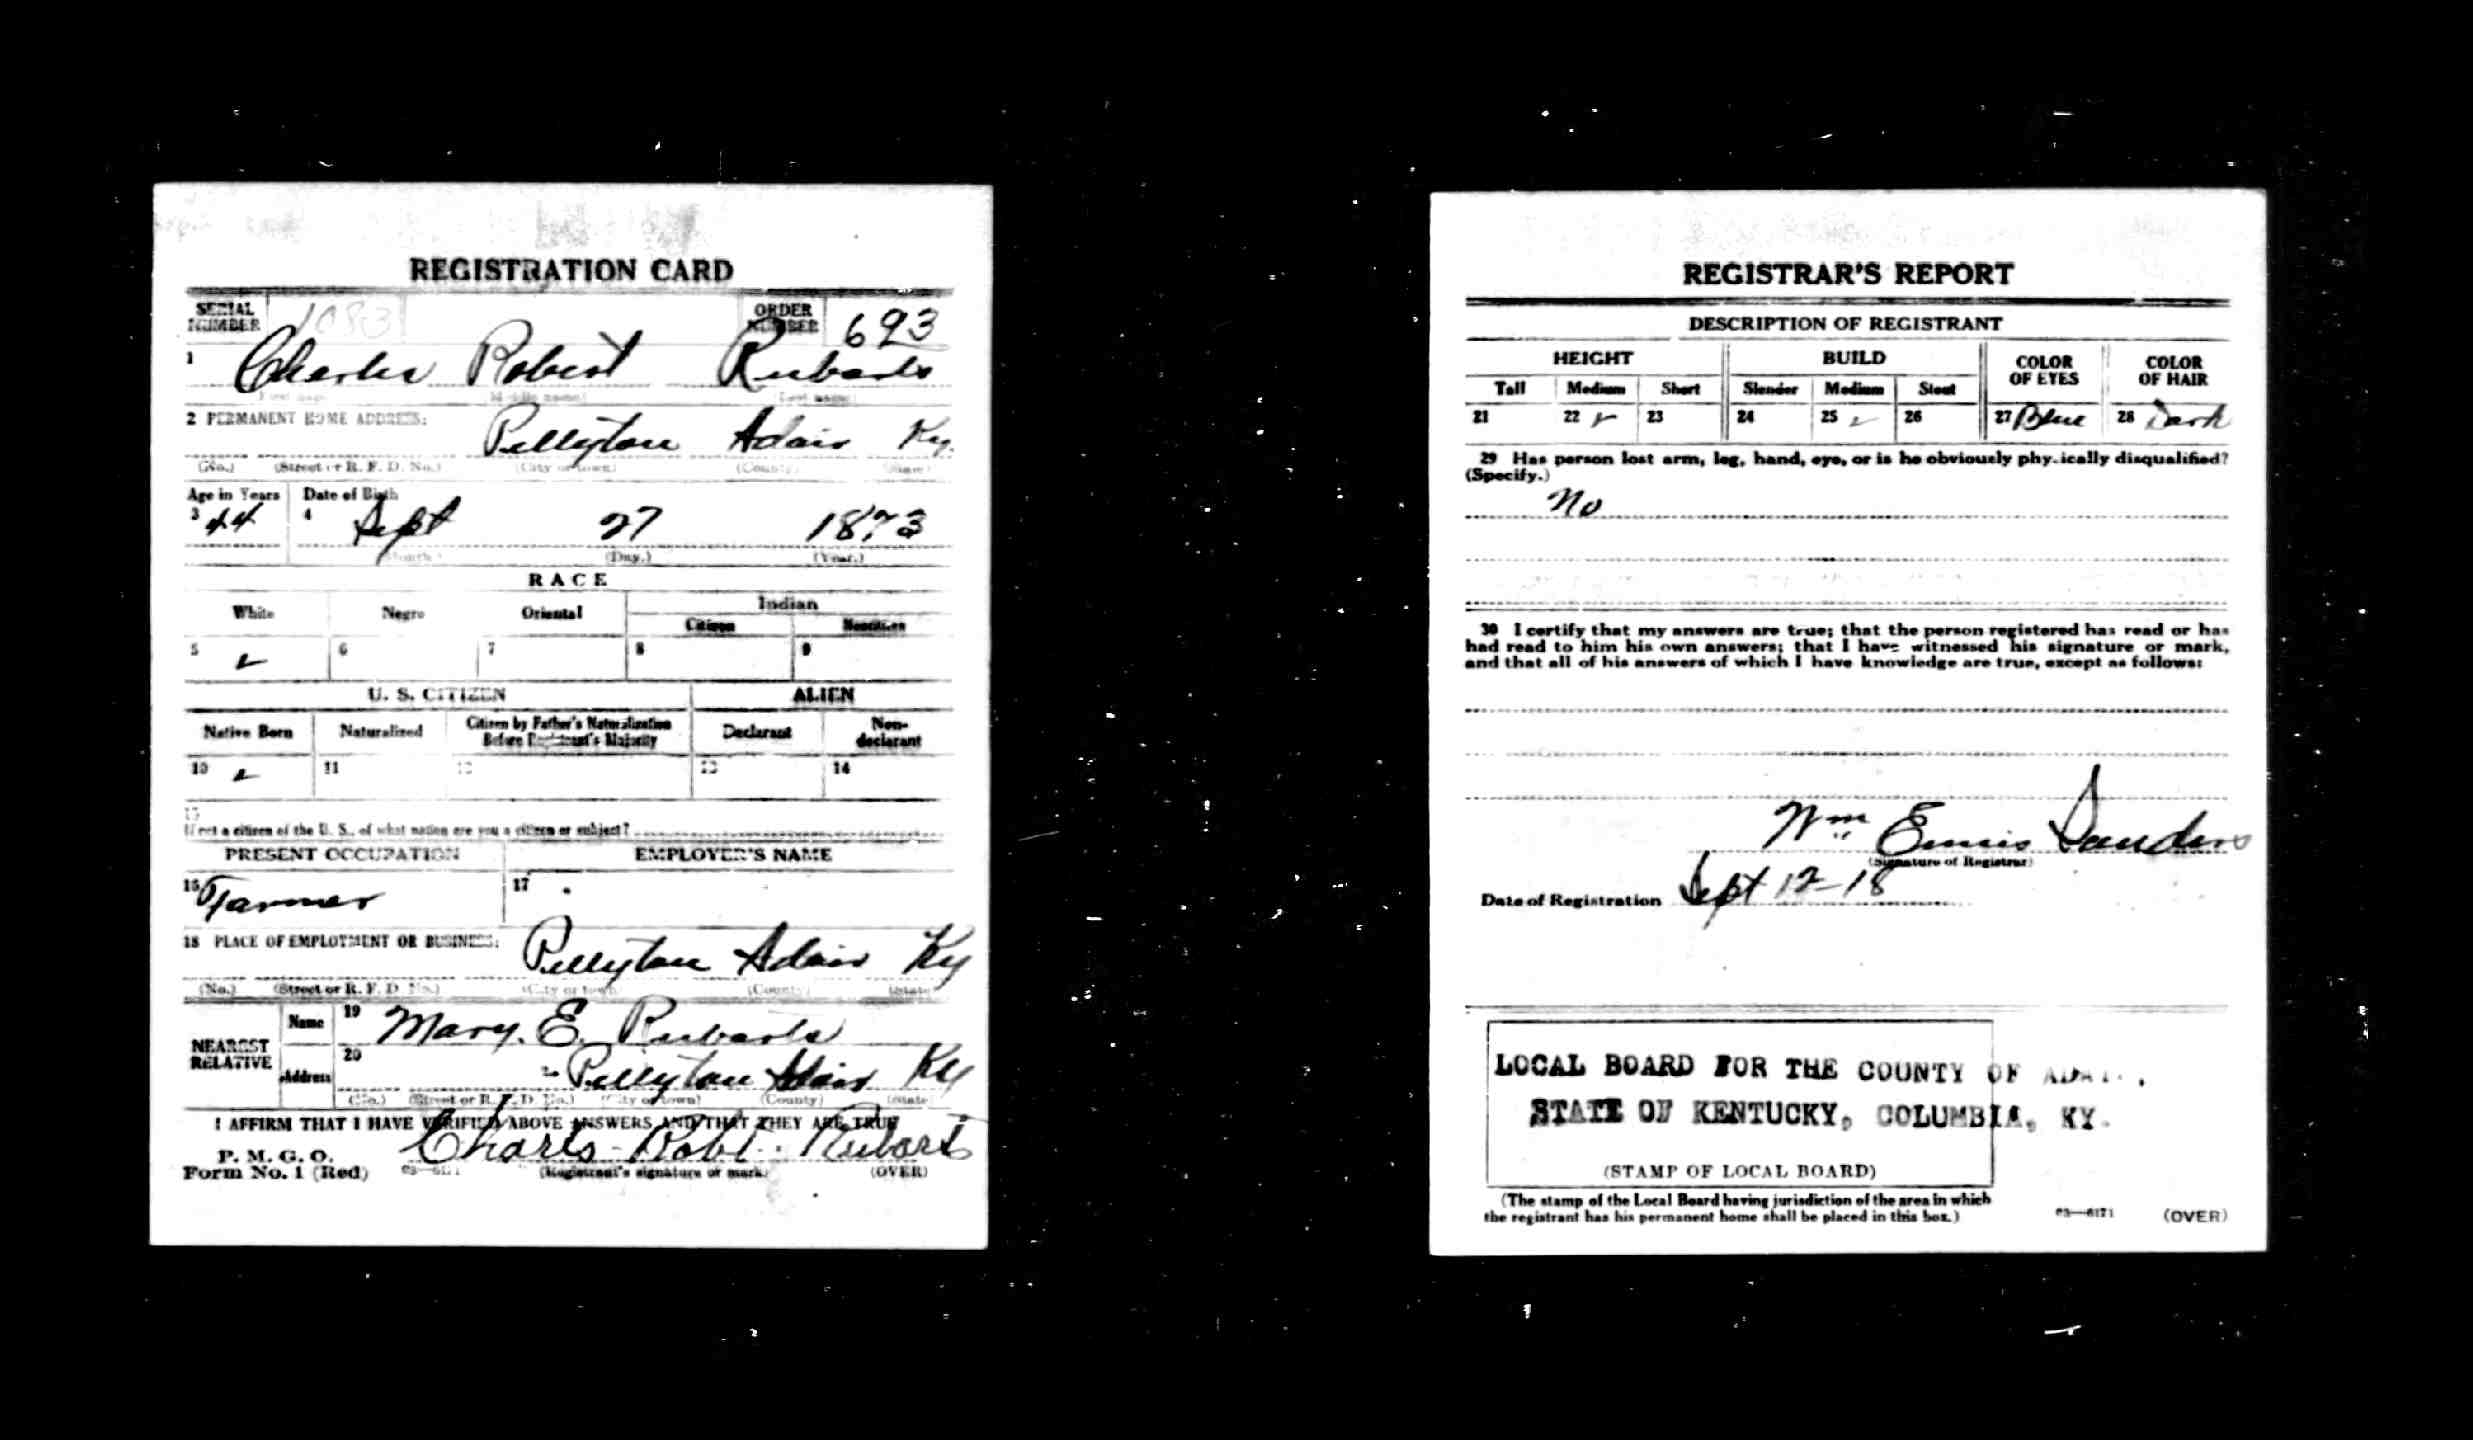 REGISTRATION CARD
SERIAL NUMBER 1083 ORDER NUMBER 693
1 Charles Robert Rubarts
(First name) (Middle name) (Last name)
2 PERMANENT HOME ADDRESS:
Pellyton Adair Ky.
(No.) (Street or R. F. D. No.) (City or town) (County) (State)
Age in Years Date of Birth
3 44 4 Sept 27 1873
(Month.) (Day.) (Year.)
RACE
White Negro Oriental Indian
Citizen Noncitizen
5 6 7 8 9
U. S. CITIZEN ALIEN
Native Born Naturalized Citizen by Father's Naturalization Before Registrant's Majority Declarant Non-declarant
10 11 12 13 14
15
If not a citizen of the U. S., of what nation are you a citizen or subject?
PRESENT OCCUPATION EMPLOYER'S NAME
16 Farmer 17
18 PLACE OF EMPLOYMENT OR BUSINESS:
Pellyton Adair Ky
(No.) (Street or R. F. D. No.) (City or town) (County) (State)
NEAREST RELATIVE
Name 19 Mary. E. Rubarts
Address 20 Pellyton Adair Ky
(No.) (Street or R. F. D. No.) (City or town) (County) (State)
I AFFIRM THAT I HAVE VERIFIED ABOVE ANSWERS AND THAT THEY ARE TRUE
P. M. G. O.
Form No. 1 (Red) 03—6171 Charls Robt. Rubarts
(Registrant's signature or mark) (OVER)
REGISTRAR'S REPORT
DESCRIPTION OF REGISTRANT
HEIGHT BUILD COLOR OF EYES COLOR OF HAIR
Tall Medium Short Slender Medium Stout
21 22 23 24 25 26 27 Blue 28 Dark
29 Has person lost arm, leg, hand, eye, or is he obviously physically disqualified?
(Specify.)
No
30 I certify that my answers are true; that the person registered has read or has
had read to him his own answers; that I have witnessed his signature or mark,
and that all of his answers of which I have knowledge are true, except as follows:
Wm Ennis Sanders
(Signature of Registrar)
Date of Registration Sept 12-18
LOCAL BOARD FOR THE COUNTY OF ADAIR,
STATE OF KENTUCKY, COLUMBIA, KY.
(STAMP OF LOCAL BOARD)
(The stamp of the Local Board having jurisdiction of the area in which
the registrant has his permanent home shall be placed in this box.)
03—6171 (OVER)